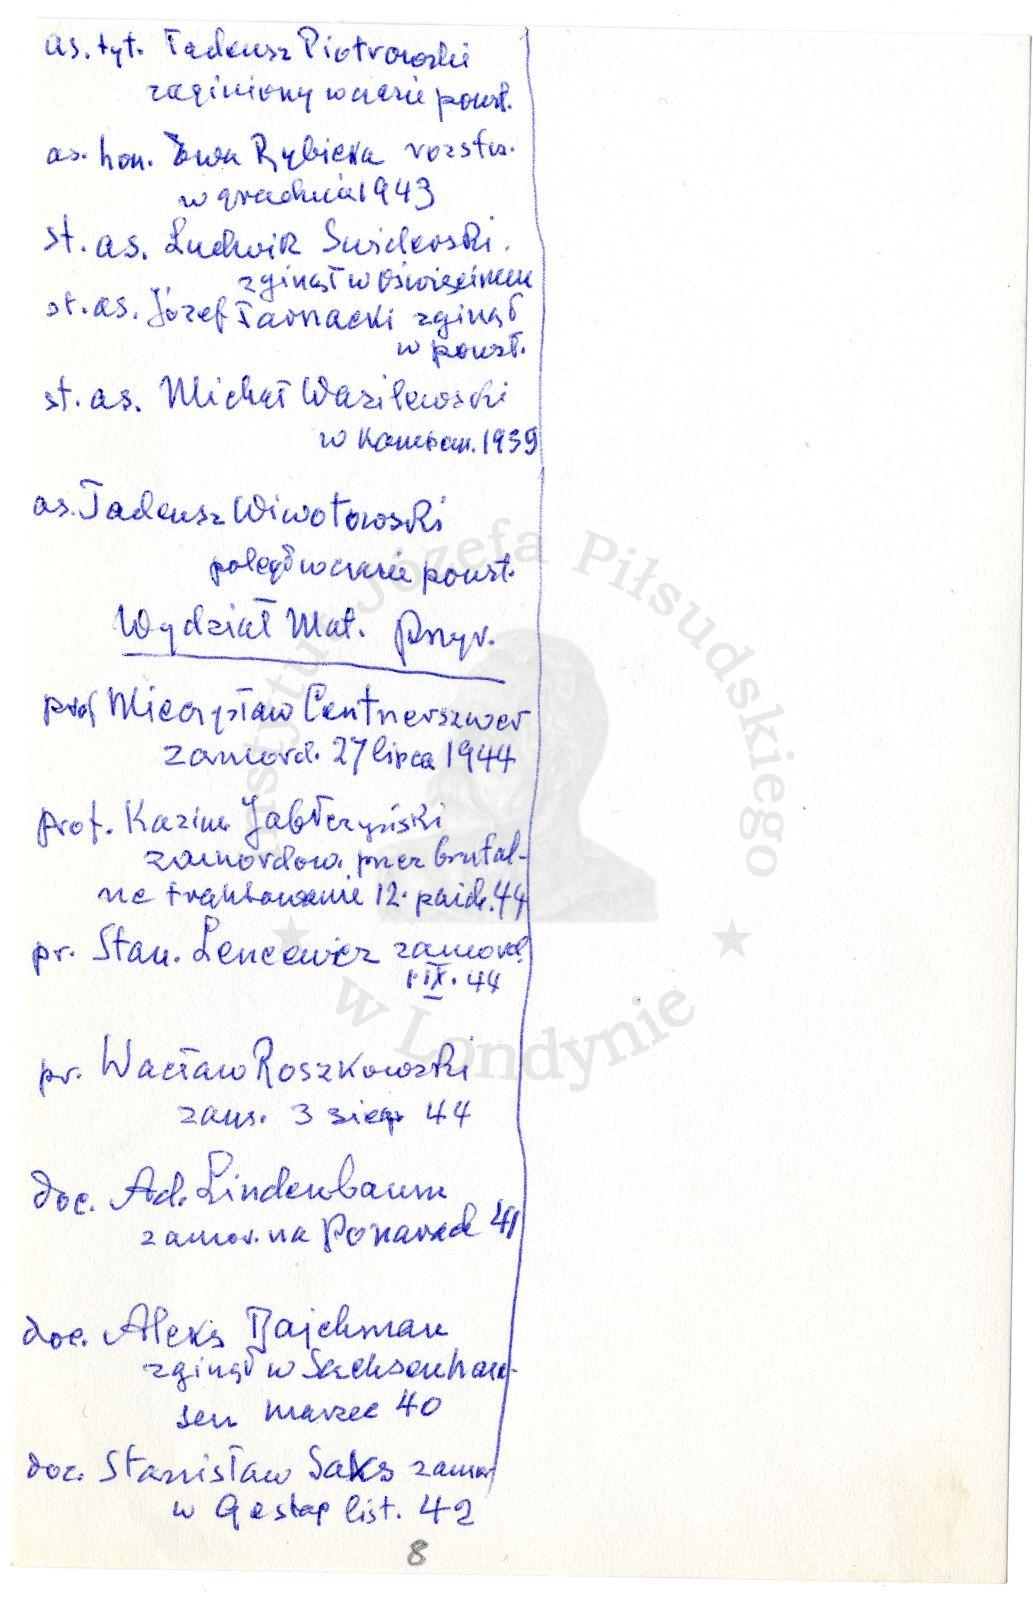 as. tyt. Tadeusz Piotrowski
zaginiony w czasie powst.
as. hon. Ewa Rybicka rozstrz.
w grudniu 1943
st. as. Ludwik Świderski.
zginął w Oświęcimiu
st. as. Józef Tarnacki zginął
w powst.
st. as. Michał Wasilewski
w kampan. 1939
as. Tadeusz Wiwotowski
poległ w czasie powst.
Wydział Mat. Przyr.
prof Mieczysław Centnerszwer
zamord. 27 lipca 1944
prof. Kazim Jabłczyński
zamordow. przez brutal-
ne traktowanie 12. paźdz. 44
pr. Stan. Lencewicz zamord.
1 IX. 44
pr. Wacław Roszkowski
zam. 3 sierp 44
doc. Ad. Lindenbaum
zamor. na Ponarach 41
doc. Aleks Rajchman
zginął w Sachsenhau-
sen marzec 40
doc. Stanisław Saks zamor
w Gestap list. 42
8
Instytut Józefa Piłsudskiego
w Londynie